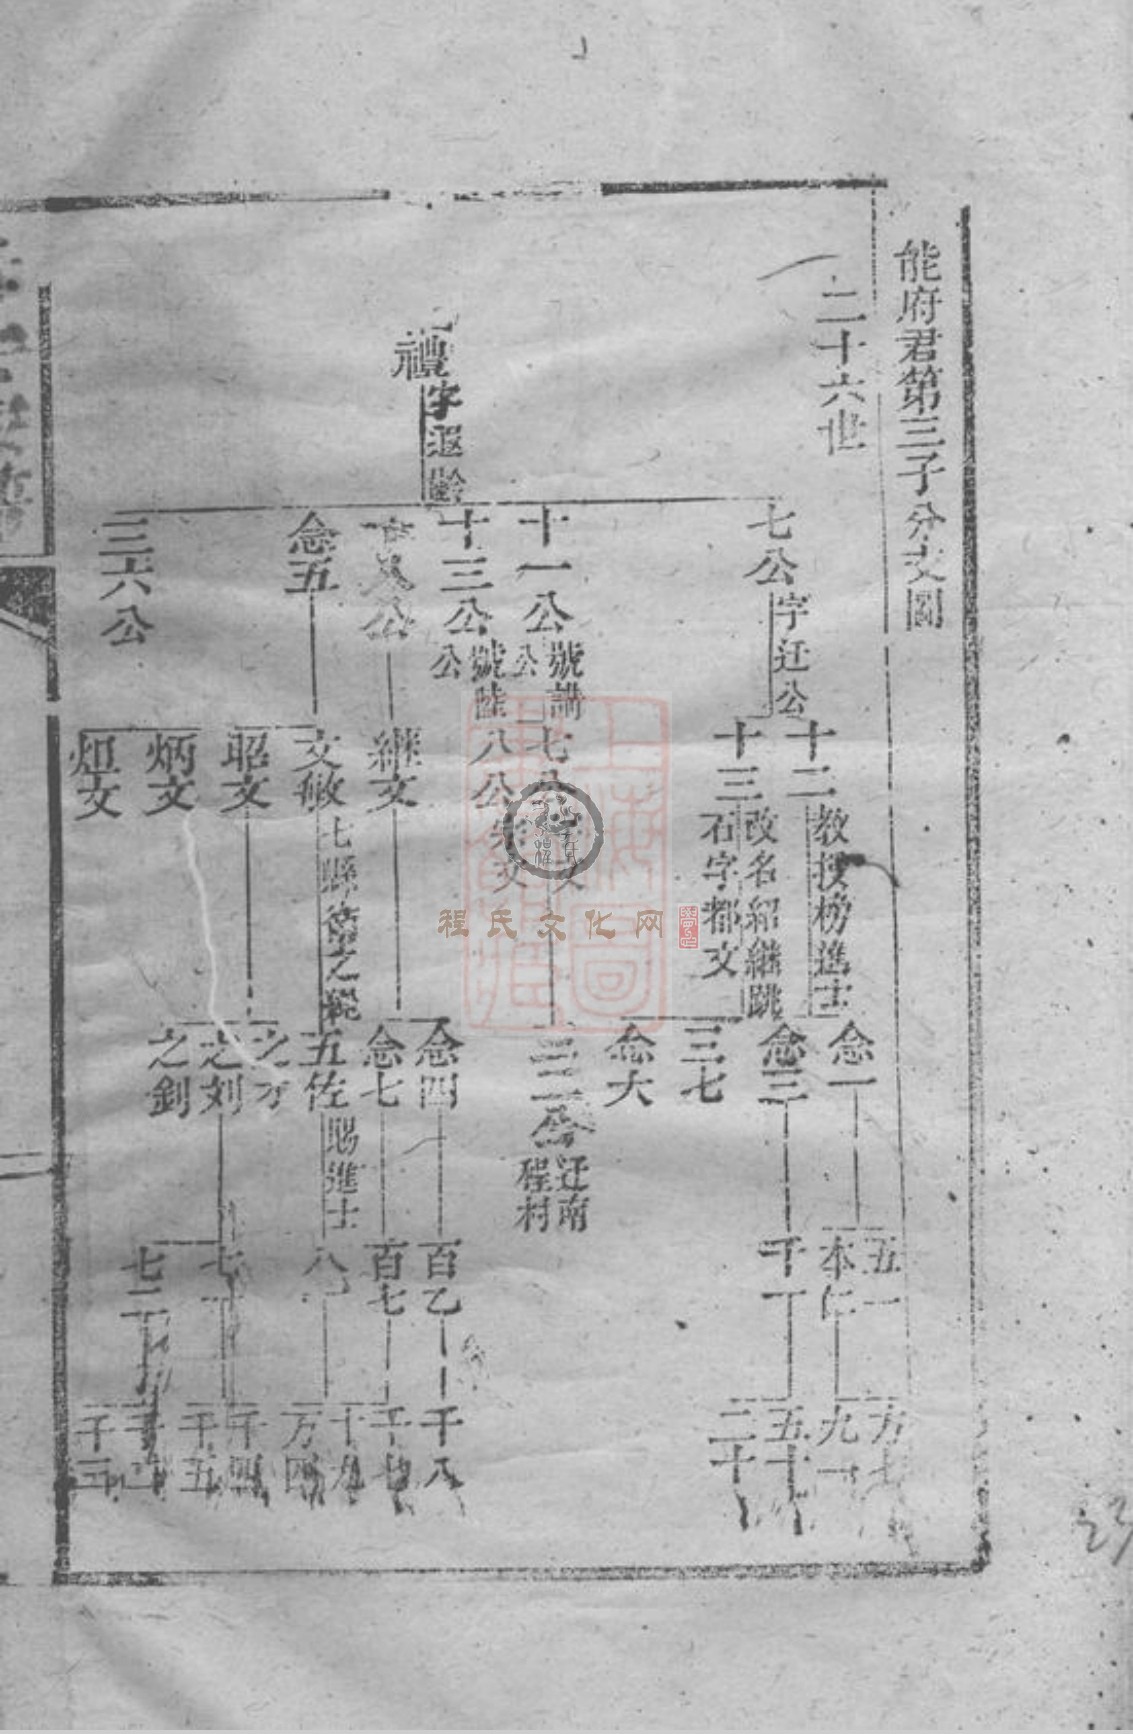 能府君第三子分支圖
二十六世
禮字遐齡
七公字迁公
十一公號講公
十三公號陸公
公
念五
三六公
十二教授榜進士
十三改名紹繼跳石字都文
七公
八公宗文
継文
文敏七縣
之
昭文
炳文
烜文
念一
念三
三七
念大
三二公迁南程村
念四
念七
五佐賜進士
之才
之刘
之釗
五一
本仁
千一
百乙
百七
八
七一
七二
方七
九一
五十
二十
千八
千七
十九
方四
千四
千五
千二
千三
程氏文化网